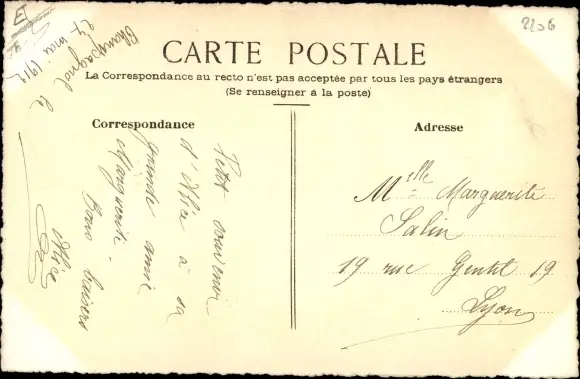 2206
Champagnol le
27 mai 1912
CARTE POSTALE
La Correspondance au recto n'est pas acceptée par tous les pays étrangers
(Se renseigner à la poste)
Correspondance
Petit souvenir
d'Alice à sa
grande amie
Marguerite.
Bons baisers
Alice
Adresse
Melle Marguerite
Salin
19 rue Gentil 19
Lyon